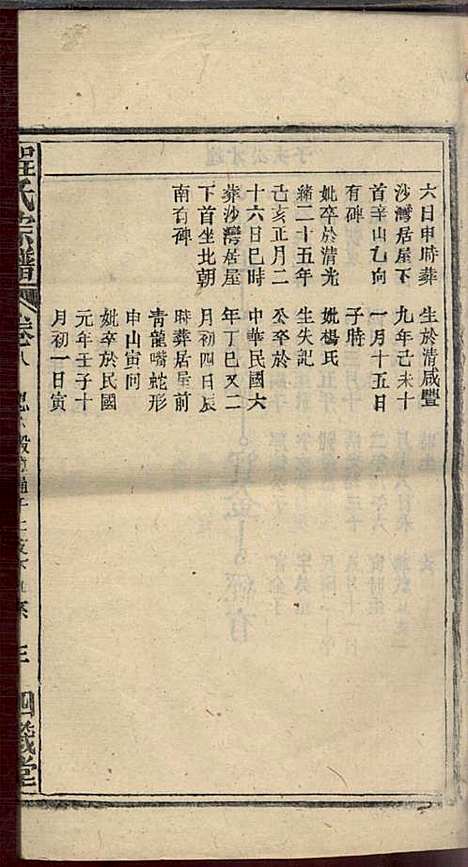 六日申時葬
沙灣居屋下
首辛山乙向
有碑
妣卒於清光
緒二十五年
己亥正月二
十六日巳時
葬沙灣居屋
下首坐北朝
南有碑
生於清咸豐
九年己未十
一月十五日
子時
妣楊氏
生失記
公卒於
中華民國六
年丁巳又二
月初四日辰
時葬居屋前
青龍嘴蛇形
申山寅向
妣卒於民國
元年壬子十
月初一日寅
氏宗譜
卷八
三